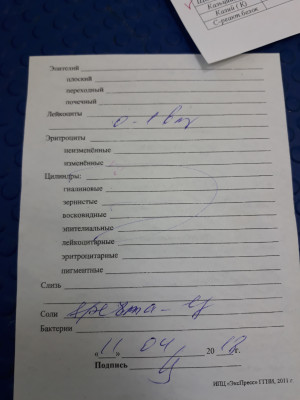 Кальци
Калий ( К)
С-реакт.белок
Эпителий
плоский
переходный
почечный
Лейкоциты 0-1 в п/з
Эритроциты
неизменённые
изменённые
Цилиндры:
гиалиновые
зернистые
восковидные
эпителиальные
лейкоцитарные
эритроцитарные
пигментные
Слизь
Соли
Бактерии
«11» 04 20 г.
Подпись
ИПЦ «ЭксПресс» ГГПИ, 2011 г